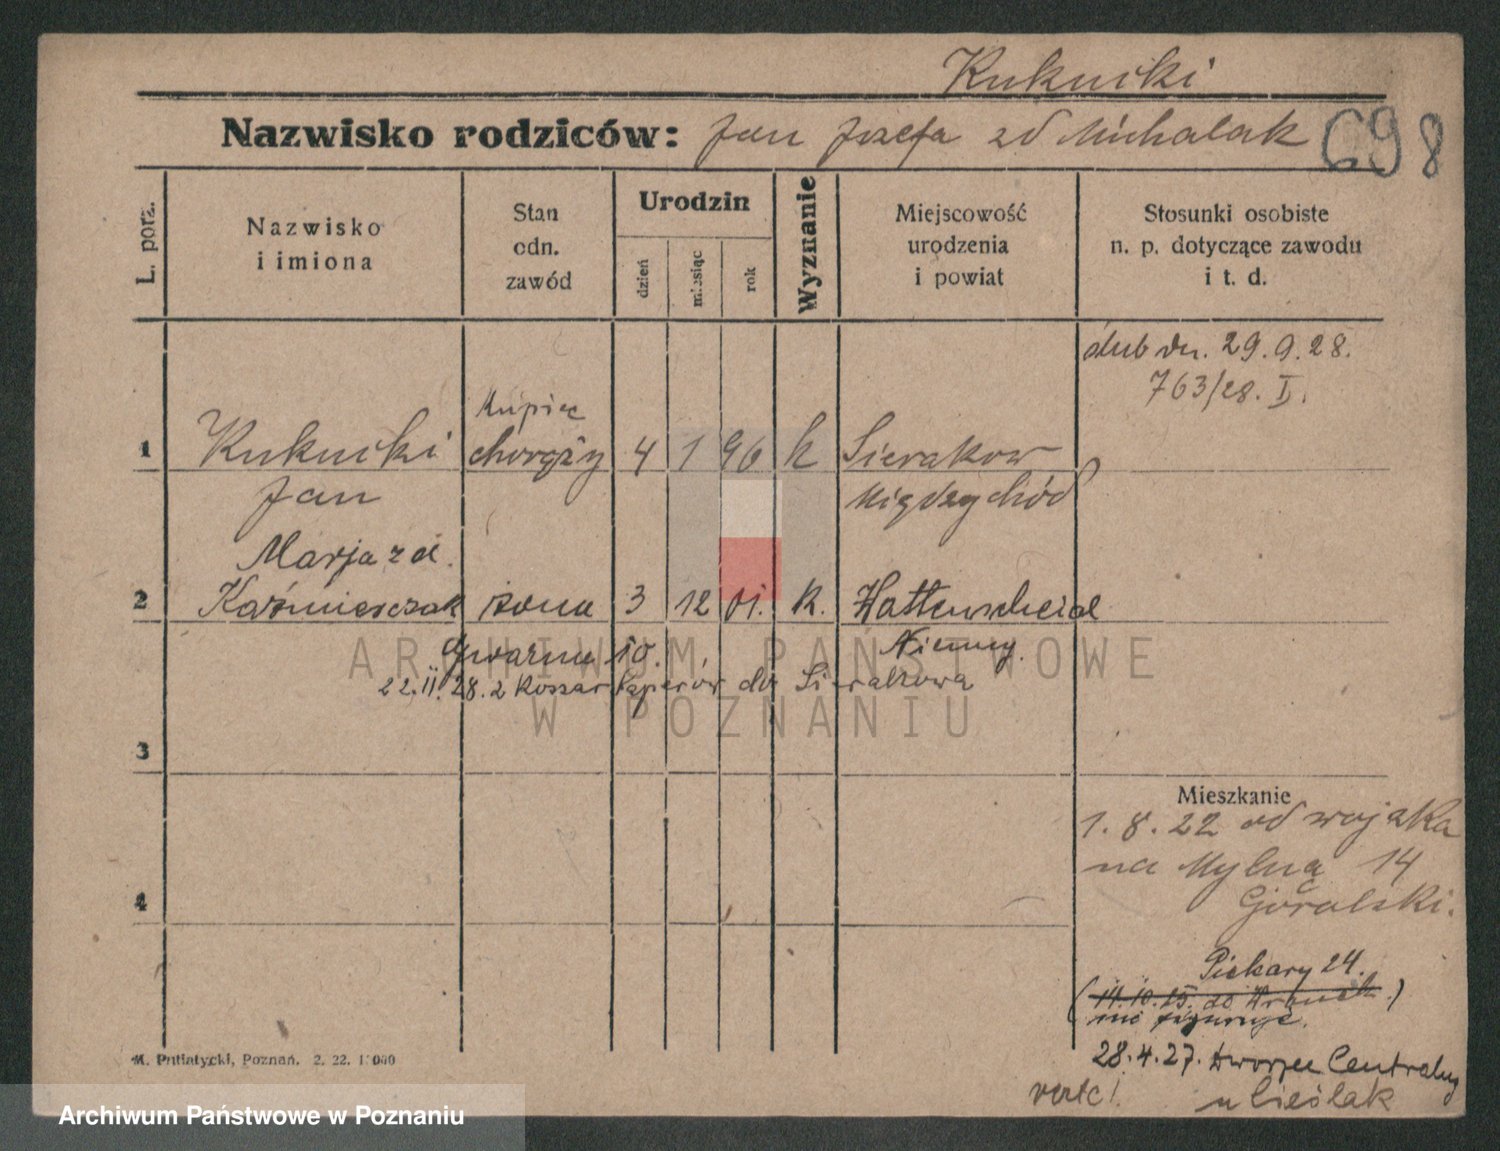 Kukucki
Nazwisko rodziców: Jan Józefa zd Michalak 698
L. porz.
Nazwisko
i imiona
Stan
odn.
zawód
Urodzin
dzień
miesiąc
rok
Wyznanie
Miejscowość
urodzenia
i powiat
Stosunki osobiste
n. p. dotyczące zawodu
i t. d.
ślub dn. 29.9.28.
763/28. I.
Kupiec
1 Kukucki chorąży 4 1 96 k Sierakow
Jan Międzychód
Marja zd.
2 Kaźmierczak żona 3 12 01. k. Hattenscheid
Gwarna 10. Niemcy.
22.II.28. 2 Koszar papierów do Sierakowa
3
Mieszkanie
1.8.22 od wojaka
na Mylną 14
4
Góralski.
Piekary 24.
(14.10.25. do
nie figuruje.
28.4.27. Dworzec Centralny
verte! u Cieślak
M. Putiatycki, Poznań. 2. 22. 1'000
ARCHIWUM PAŃSTWOWE
W POZNANIU
Archiwum Państwowe w Poznaniu